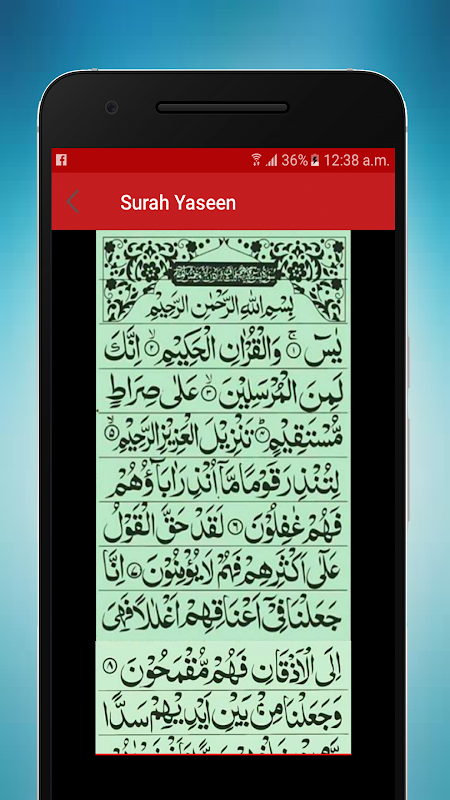 36% 12:38 a.m.
Surah Yaseen
بِسْمِ اللهِ الرَّحْمٰنِ الرَّحِيْمِ
يٰسٓ ۚ ۱ وَالْقُرْاٰنِ الْحَكِيْمِ ۙ ۲ اِنَّكَ
لَمِنَ الْمُرْسَلِيْنَ ۙ ۳ عَلٰى صِرَاطٍ
مُّسْتَقِيْمٍ ؕ ۴ تَنْزِيْلَ الْعَزِيْزِ الرَّحِيْمِ ۙ ۵
لِتُنْذِرَ قَوْمًا مَّاۤ اُنْذِرَ اٰبَآؤُهُمْ
فَهُمْ غٰفِلُوْنَ ۶ لَقَدْ حَقَّ الْقَوْلُ
عَلٰٓى اَكْثَرِهِمْ فَهُمْ لَا يُؤْمِنُوْنَ ۷ اِنَّا
جَعَلْنَا فِيْٓ اَعْنَاقِهِمْ اَغْلٰلًا فَهِيَ
اِلَى الْاَذْقَانِ فَهُمْ مُّقْمَحُوْنَ ۸
وَجَعَلْنَا مِنْۢ بَيْنِ اَيْدِيْهِمْ سَدًّا